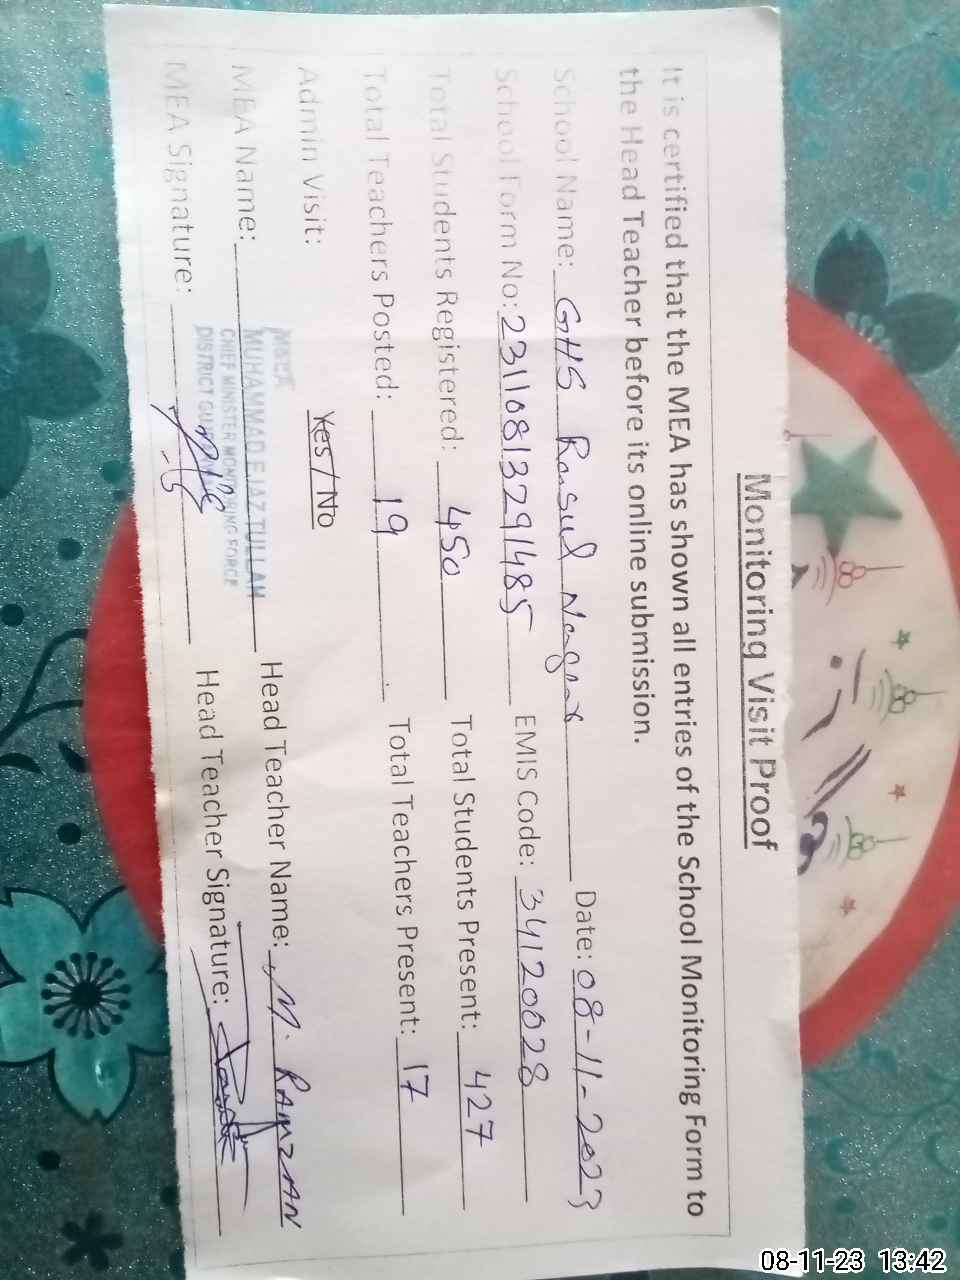 Monitoring Visit Proof
It is certified that the MEA has shown all entries of the School Monitoring Form to
the Head Teacher before its online submission.
School Name: GHS Rasul Nagar Date: 08-11-2023
School Form No: 23110813291485 EMIS Code: 34120028
Total Students Registered: 450 Total Students Present: 427
Total Teachers Posted: 19 Total Teachers Present: 17
Admin Visit: Yes / No
MEA Name: MUHAMMAD EJAZ TULLAH Head Teacher Name: M. RAMZAN
CHIEF MINISTER MONITORING FORCE
DISTRICT
MEA Signature: Head Teacher Signature:
08-11-23 13:42